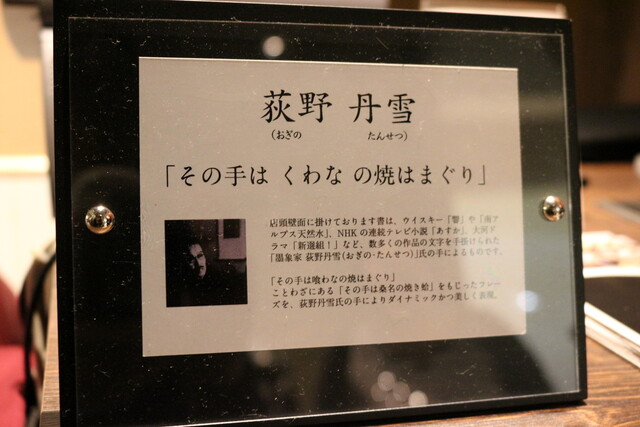 荻野 丹雪
（おぎの たんせつ）
「その手は くわな の焼はまぐり」
店頭壁面に掛けております書は、ウイスキー「響」や「南ア
ルプス天然水」、NHKの連続テレビ小説「あすか」、大河ド
ラマ「新選組！」など、数多くの作品の文字を手掛けられた
「墨象家 荻野丹雪（おぎの・たんせつ）」氏の手によるものです。
「その手は喰わなの焼はまぐり」
ことわざにある「その手は桑名の焼き蛤」をもじったフレー
ズを、荻野丹雪氏の手によりダイナミックかつ美しく表現。